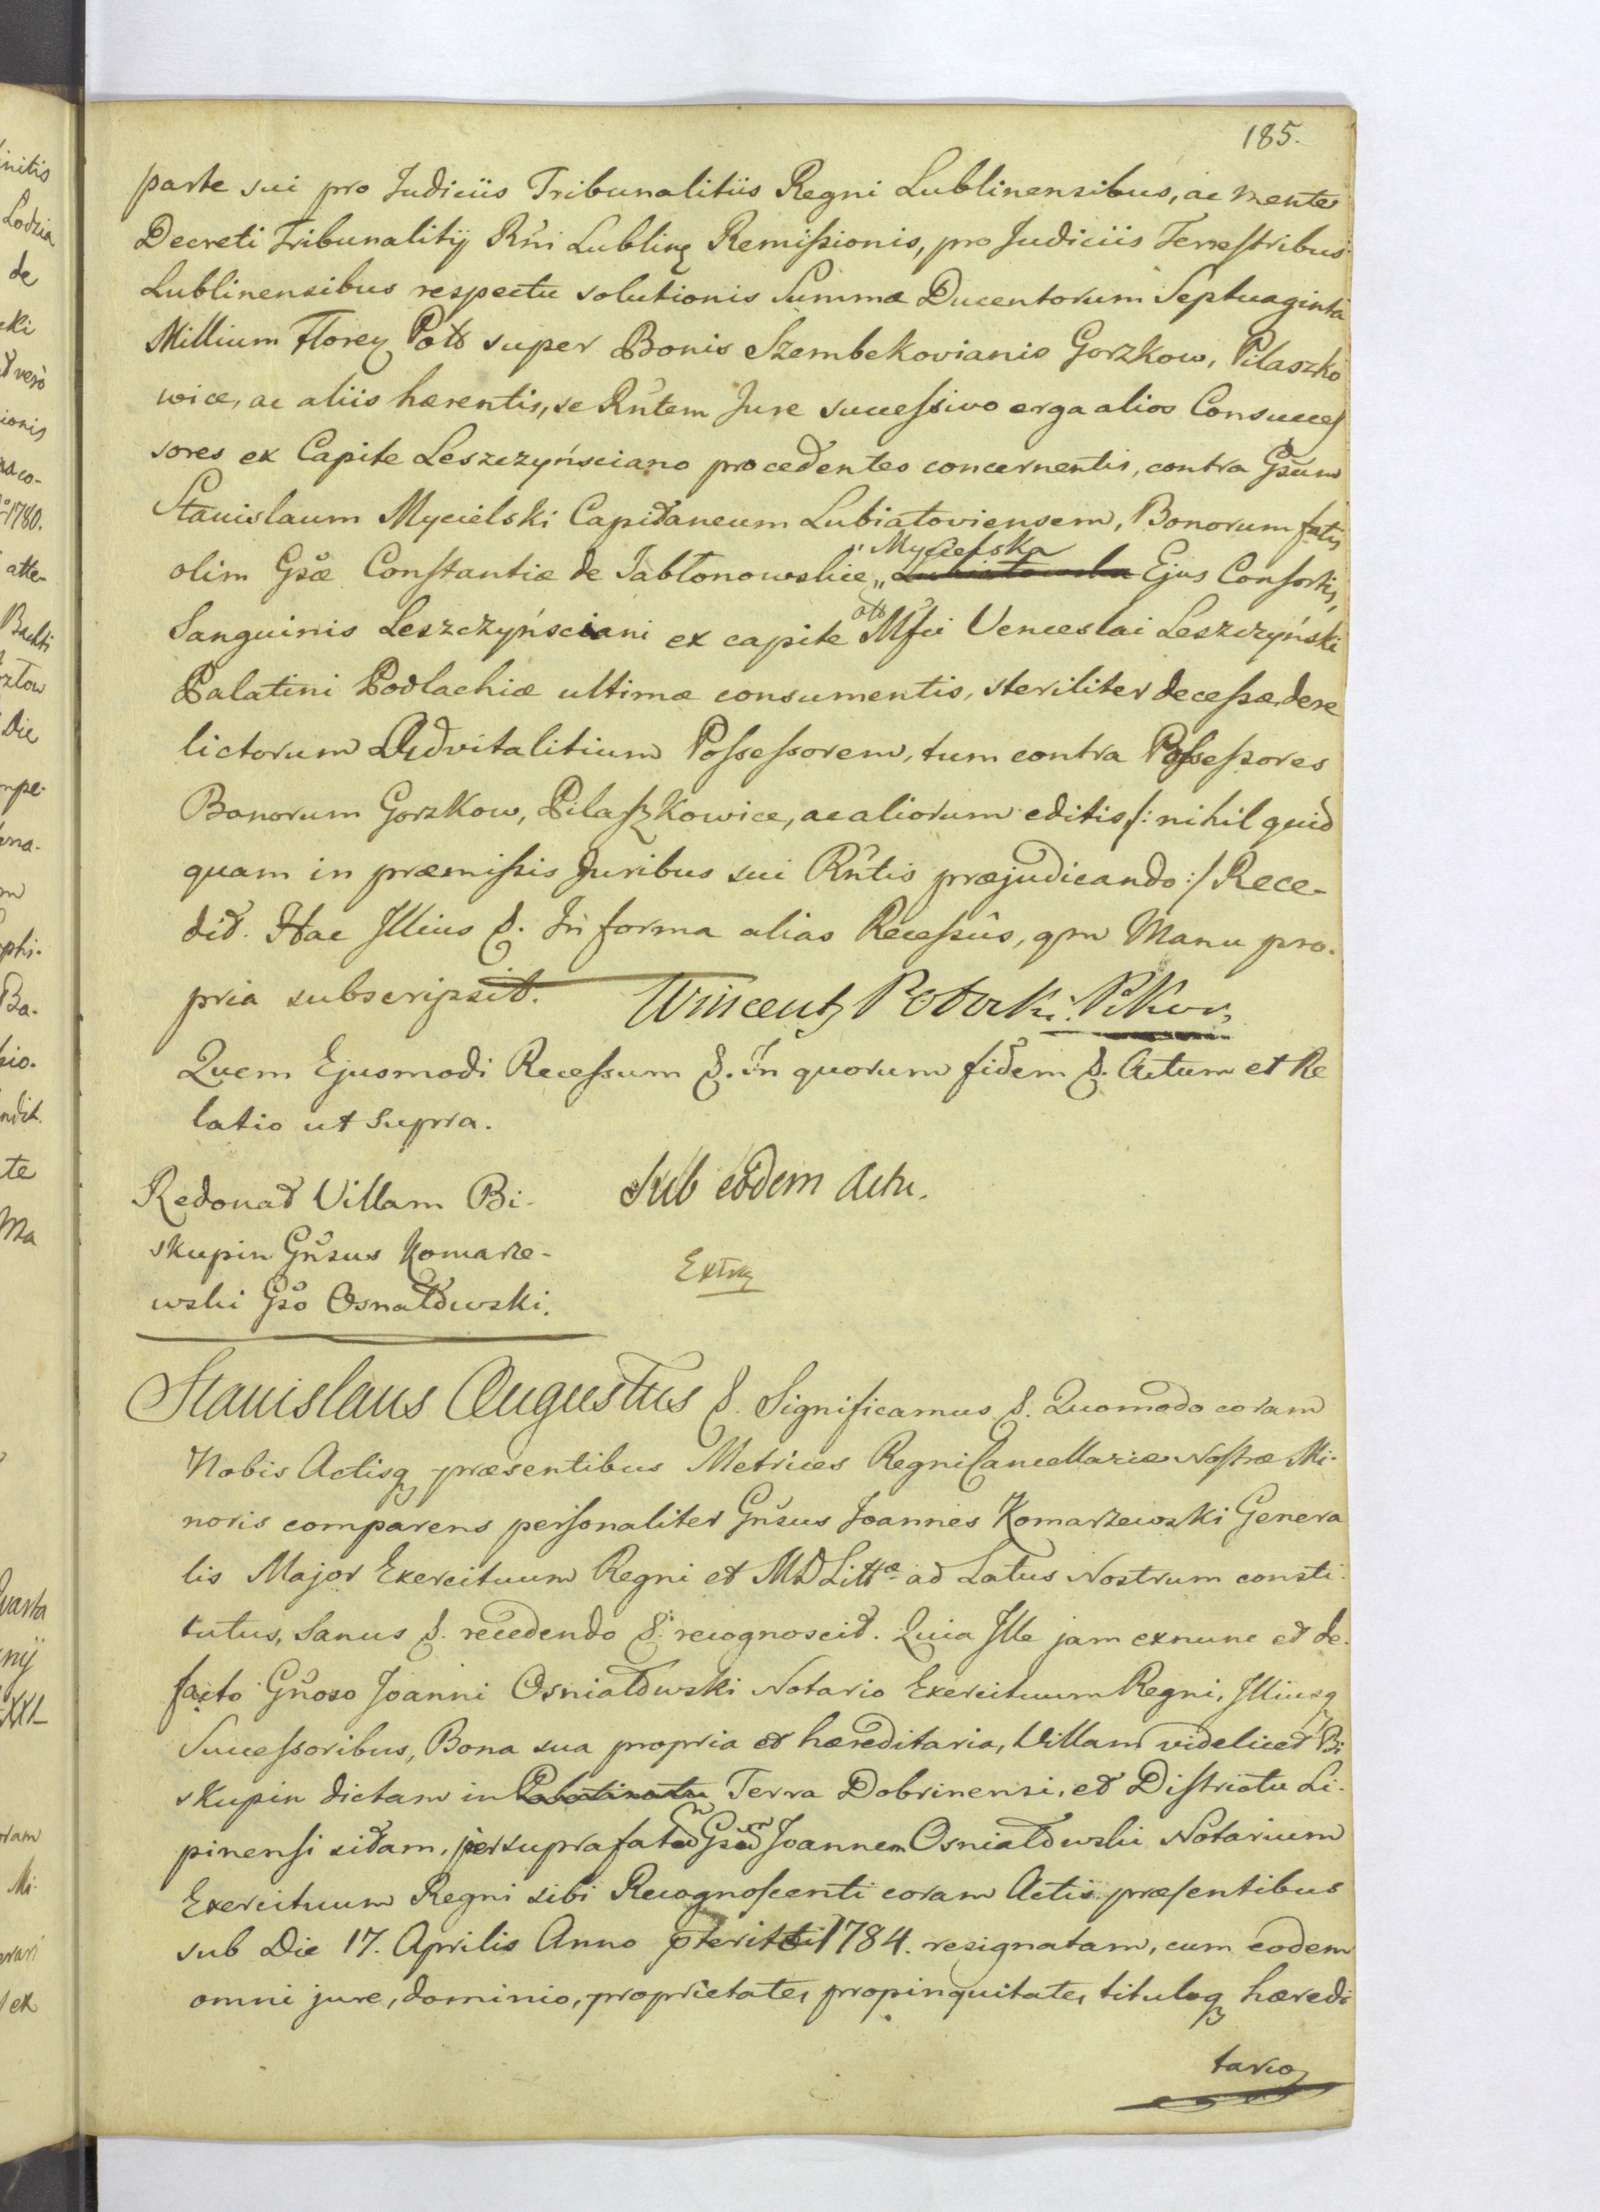 185.
parte sui pro Judiciis Tribunalitiis Regni Lublinensibus, ac mente
Decreti Tribunalitij Rni Lublin Remissionis, pro Judiciis Terrestribus
Lublinensibus respectu solutionis Summæ Ducentorum Septuaginta
Millium Floren Pol super Bonis Szembekovianis Gorzkow, Pilaszko
wice, ac aliis hærentis, se Rntem Jure successivo erga alios Consucces
sores ex Capite Leszczyńsciano procedentes concernentis, contra Gsum
Stanislaum Mycielski Capitaneum Lubiatoviensem, Bonorum fatis
olim Gsæ Constantiæ de Jabłonowskie Mycielska Ejus Consortis,
Sanguinis Leszczyńsciani ex capite olim Mfci Venceslai Leszczyński
Palatini Podlachiæ ultimæ consumentis, steriliter decessæ, dere
lictorum Advitalitium Possessorem, tum contra Possessores
Bonorum Gorzkow, Pilaszkowice, ac aliorum editis /: nihil quid
quam in præmissis Juribus sui Rntis præjudicando :/ Rece-
dit. Hac Illius &. In forma alias Recessûs, qm Manu pro-
pria subscripsit. Wincenty Potocki PKor,
Quem Ejusmodi Recessum &. In quorum fidem &. Actum et Re
latio ut supra.
Sub eodem Actu.
Redonat Villam Bi-
skupin Gnsus Komarze-
wski Gso Osnałowski.
Extr
Stanislaus Augustus &. Significamus &. Quomodo coram
Nobis Actisq præsentibus Metrices Regni Cancellariæ Nostræ Mi-
noris comparens personaliter Gnsus Joannes Komarzewski Genera
lis Major Exercituum Regni et MD Littæ ad Latus Nostrum consti-
tutus, Sanus &. recedendo &. recognoscit. Quia Ille jam exnunc et de-
facto Gnoso Joanni Osniałowski Notario Exercituum Regni, Illiusq
Successoribus, Bona sua propria et hæreditaria, Villam videlicet Bi
skupin dictam in Palatinatu Terra Dobrinensi, et Districtu Li-
pinensi sitam, per suprafatum Gsum Joannem Osniałowski Notarium
Exercituum Regni sibi Recognoscenti coram Actis præsentibus
sub Die 17. Aprilis Anno pteriti 1784. resignatam, cum eodem
omni jure, dominio, proprietate, propinquitate, tituloq hæredi
tario,